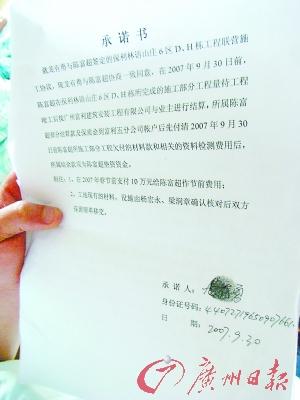 承 诺 书
戴龙有勇与陈富超签定的保利林语山庄6区D、H栋工程联营施
工协议,戴龙有勇与陈富超协商一致同意,在2007年9月30日前,
陈富超在保利林语山庄6区D、H栋所完成的施工部分工程量待工程
竣工后候广州富利建筑安装工程有限公司与业主进行结算,所属陈富
超部分结算款及保质金到富利五分公司帐户后先付清2007年9月30
日前陈富超所施工部分工程欠付的材料款和相关的资料检测费用后,
所属陈富超垫资资金。
附注:1、在2007年春节前支付10万元给陈富超作节前费用;
2、工地现有的材料、设施由杨宏永、梁润章确认核对后双方
承 诺 人:
身份证号码:
日 期:2007.9.30
广州日报